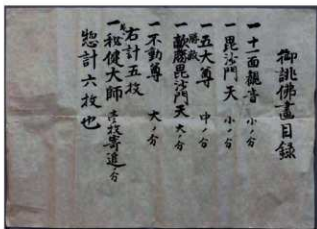 御誂佛畫目録
一十一面觀音 小ノ分
一毘沙門天 小ノ分
一五大尊 中ノ分
一敵毘沙門天 大ノ分
一不動尊 大ノ分
右計五枚
一秘健大師
惣計六枚也